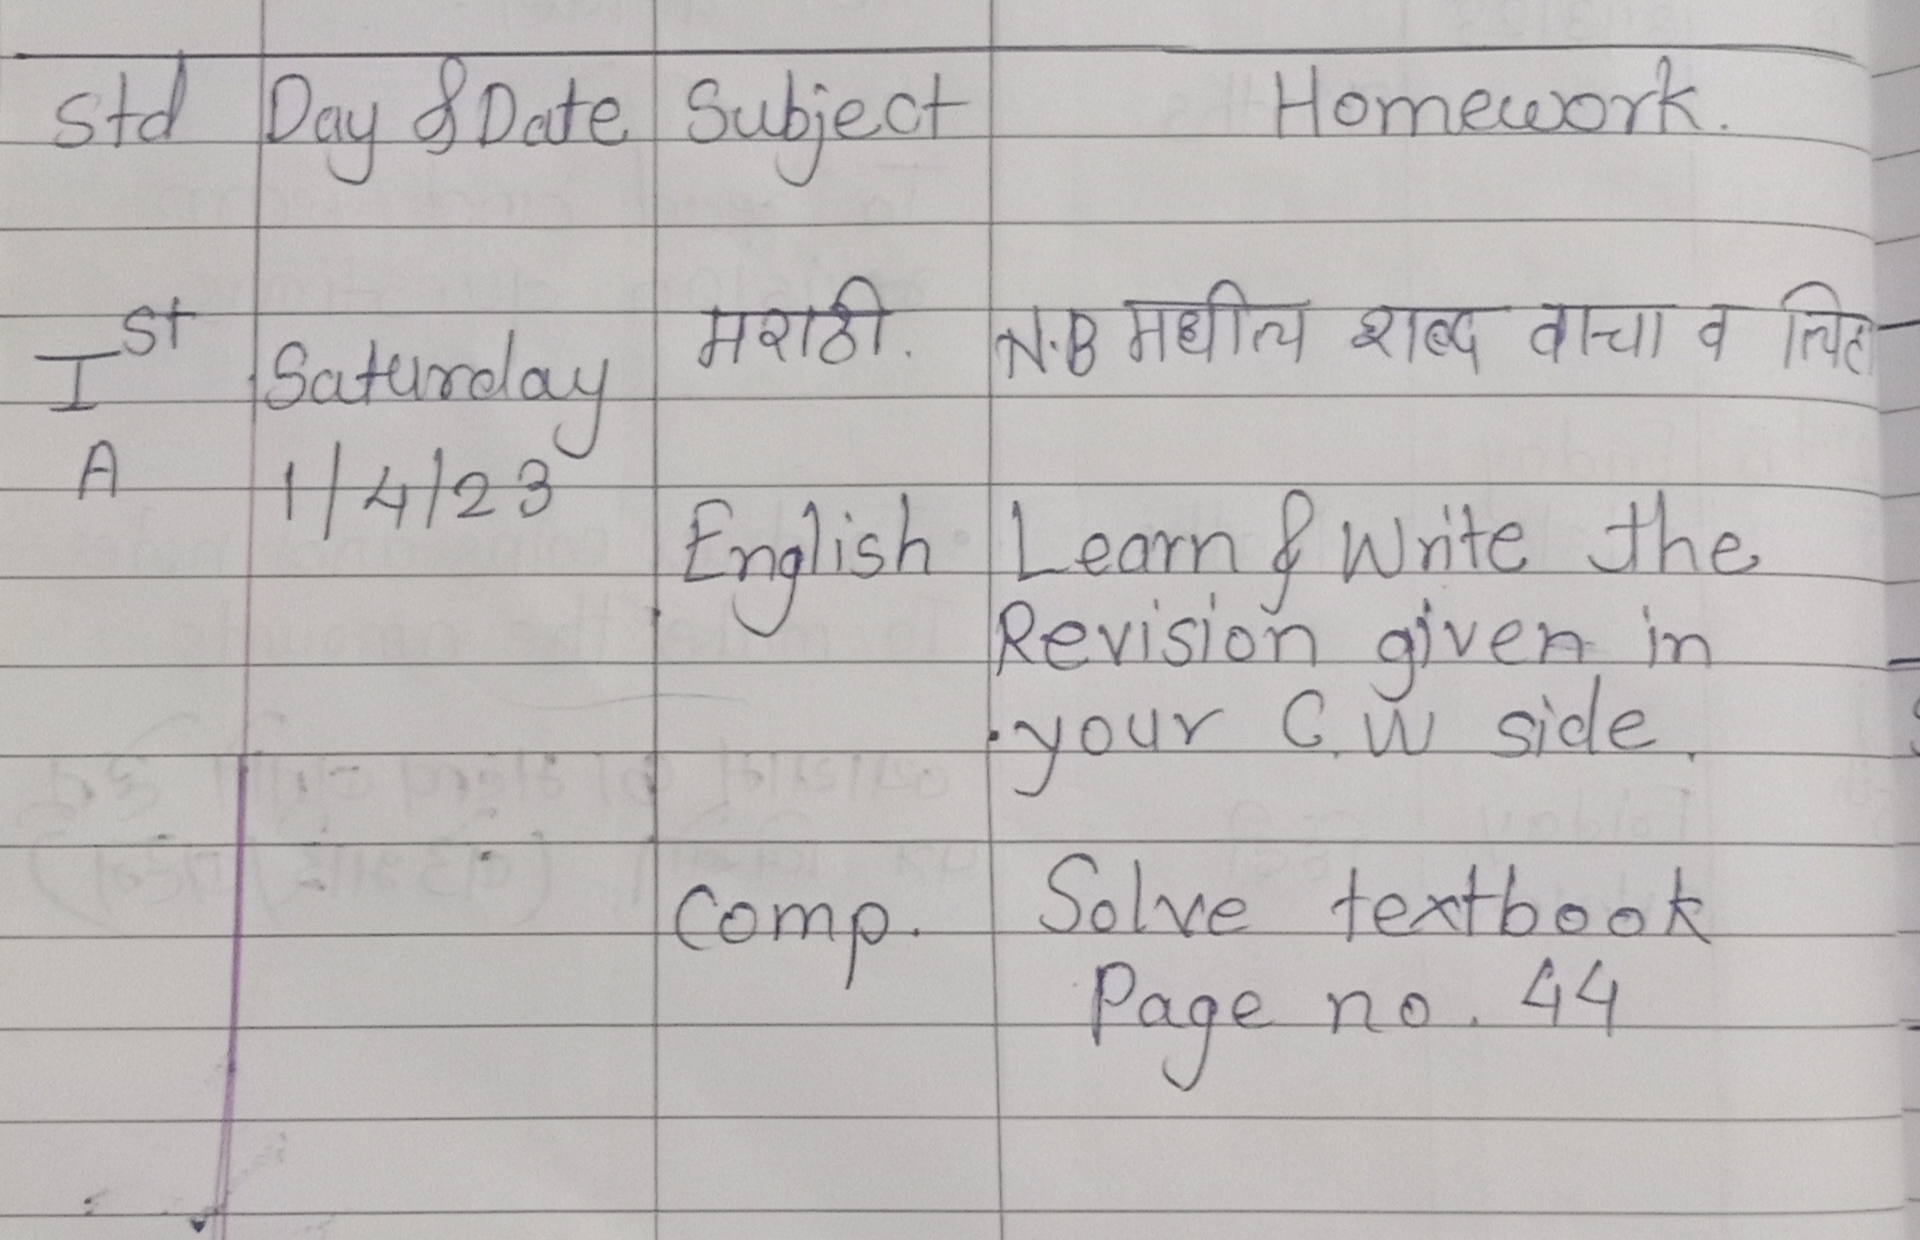 Std Day & Date Subject Homework.
Ist Saturday मराठी. N.B मधील शब्द वाचा व
A 1/4/23
English Learn & Write the
Revision given in
your C.W side.
Comp. Solve textbook
Page no. 44